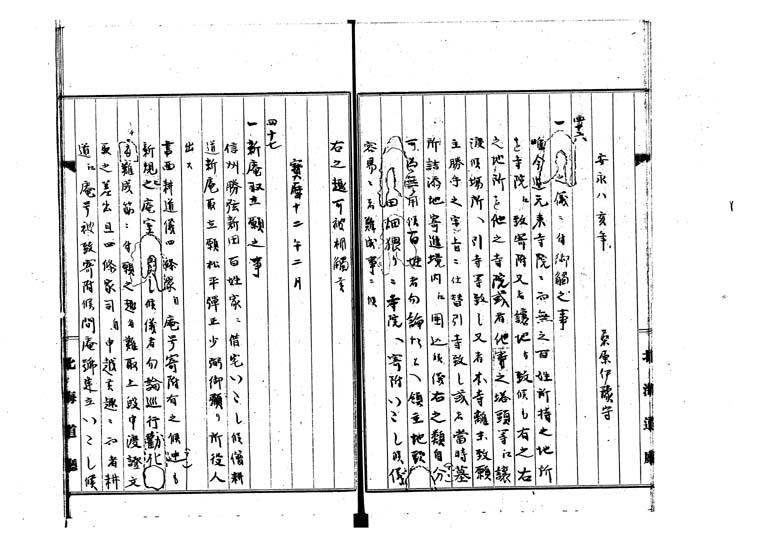 安永八亥年
桑原伊豫守
四十六
一 之儀ニ付御觸之事
唯今迄元来寺院ニ而無之百姓所持之地所
を寺院江致寄附又は譲地ニ致候も有之右
之地所を他之寺院或者他寺之塔頭等江譲
渡候場所へ引寺等致し又者本寺離末致願
主勝手之寺号ニ仕替引寺致し或者當時墓
所請添地寄進境内江囲込候儀右之類自分
可為無用候百姓者勿論たとへ領主地頭
田畑猥りニ寺院へ寄附いたし候儀
容易ニ者難成事ニ候
右之趣可被相觸候
寳暦十二年二月
四十七
一 新庵取立願之事
信州勝弦新田百姓家ニ借宅いたし候僧耕
道新庵取立願松平彈正少弼御願り所役人
出ス
書面耕道儀四條家ゟ庵号寄附有之候迚も
新規之庵室 候儀者勿論巡行勸化
難成筋ニ付願之趣者難取上段申渡證文
取之差出且四條家司ゟ申越候趣ニ而者耕
道江庵号被致寄附候間庵號建立いたし候
北海道廳
北海道廳